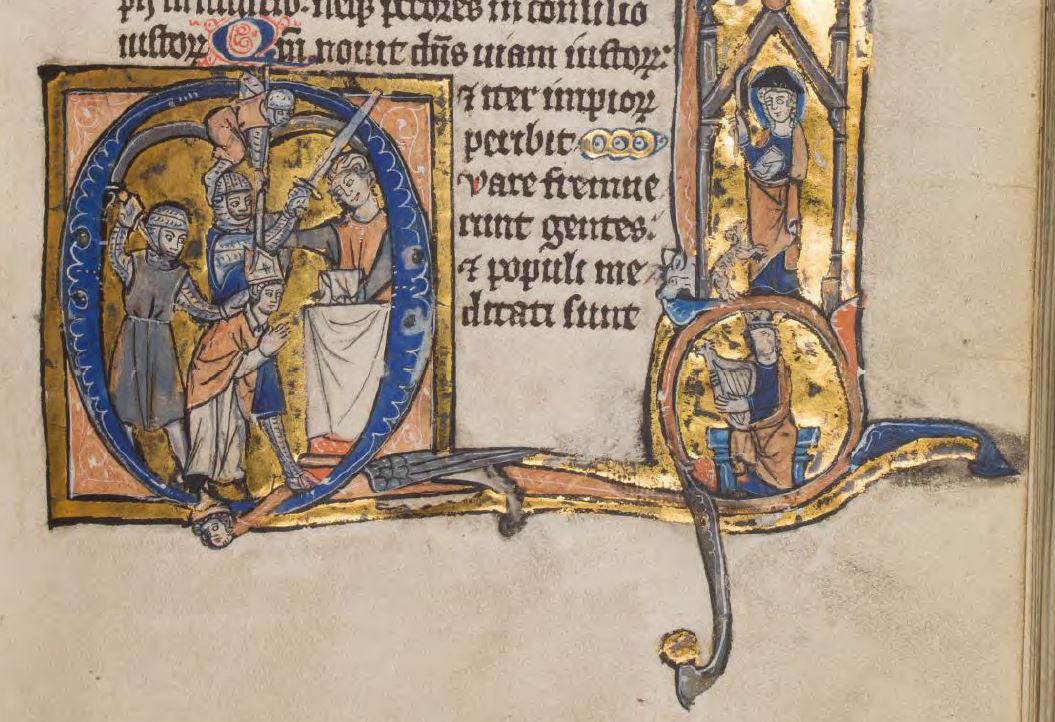 pij in iudicio: neqꝫ pctores in consilio
iustoꝝ Qm̄ nouit dn̄s uiam iustoꝝ:
⁊ iter impioꝝ
peribit
Qvare fremue
runt gentes:
⁊ populi me
ditati sunt